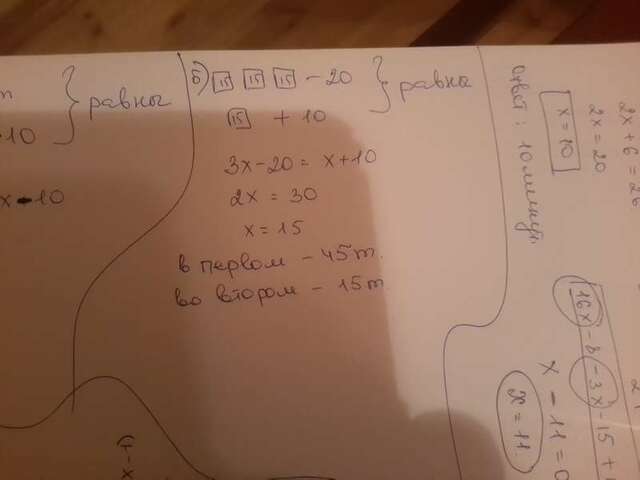 равны
10
x-10
б) 15 15 15 - 20
15 + 10
равны
3x-20 = x+10
2x = 30
x = 15
в первом - 45т.
во втором - 15т
2x+6 = 26
2x = 20
x = 10
ответ: 10
16x - 8 - 3x - 15 +
x - 11 = 0
x = 11.